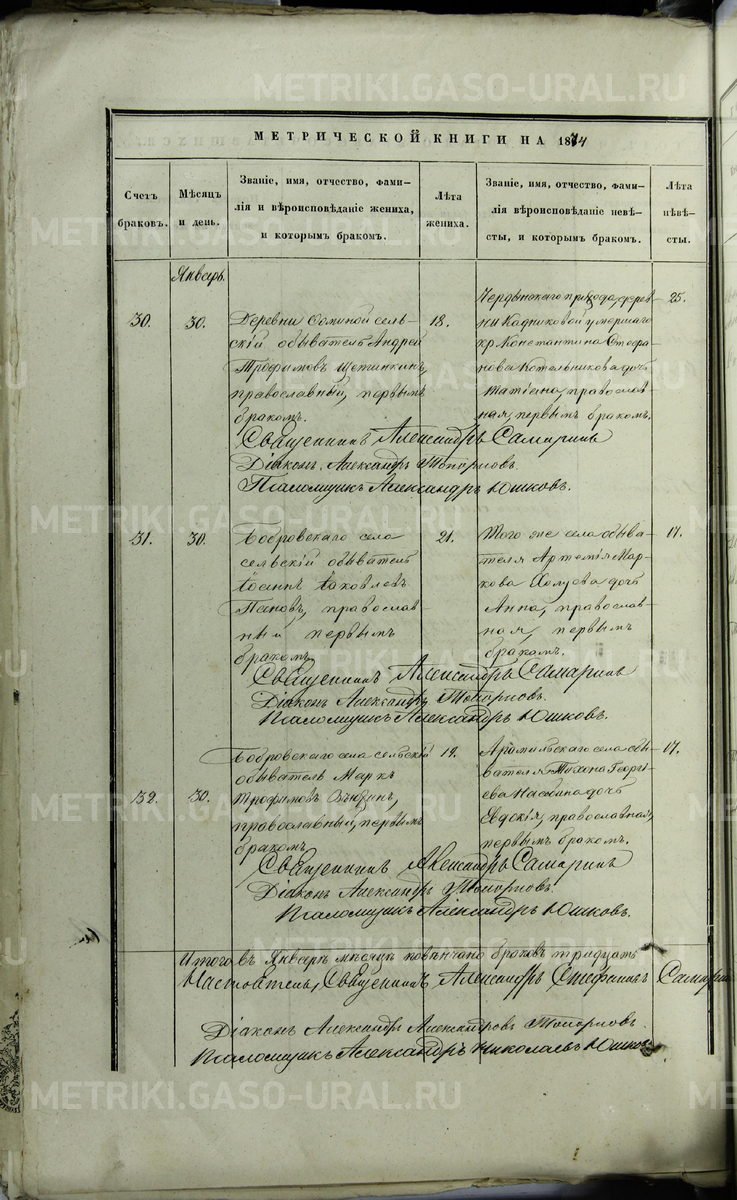 МЕТРИЧЕСКОЙ КНИГИ НА 1874
Счетъ
браковъ.
Мѣсяцъ
и день.
Званіе, имя, отчество, фами-
лія и вѣроисповѣданіе жениха,
и которымъ бракомъ.
Лѣта
жениха.
Званіе, имя, отчество, фами-
лія вѣроисповѣданіе невѣ-
сты, и которымъ бракомъ.
Лѣта
нѣвѣ-
сты.
Январь.
30.
30.
Деревни Фоминой сель-
скій обыватель Андрей
Трофимовъ Щетинкинъ,
православный, первымъ
бракомъ.
18.
прихода, дерев-
ни Кадниковой умершаго
кр. Константина Стефа-
нова Котельникова дочь
Татіана, православ-
ная, первымъ бракомъ.
25.
Священникъ Александръ Самаринъ
Діаконъ Александръ Топорновъ.
Псаломщикъ Александръ Юшковъ.
31.
30.
Бобровскаго села
сельскій обыватель
Іоаннъ Іаковлевъ
Пановъ, православ-
ный первымъ
бракомъ.
21.
Того же села обыва-
теля Артемія Мар-
кова дочь
Анна, православ-
ная, первымъ
бракомъ.
17.
Священникъ Александръ Самаринъ
Діаконъ Александръ Топорновъ.
Псаломщикъ Александръ Юшковъ.
32.
30.
Бобровскаго села сельскій
обыватель Маркъ
Трофимовъ
православный, первымъ
бракомъ.
19.
Арамильскаго села обы-
вателя Тихона Георгі-
ева дочь
Евдокія, православная,
первымъ бракомъ.
17.
Священникъ Александръ Самаринъ
Діаконъ Александръ Топорновъ.
Псаломщикъ Александръ Юшковъ.
Итого въ Январѣ мѣсяцѣ повѣнчано браковъ тридцать
Настоятель, Священникъ Александръ Стефановъ Самаринъ
Діаконъ Александръ Александровъ Топорновъ.
Псаломщикъ Александръ Николаевъ Юшковъ
METRIKI.GASO-URAL.RU